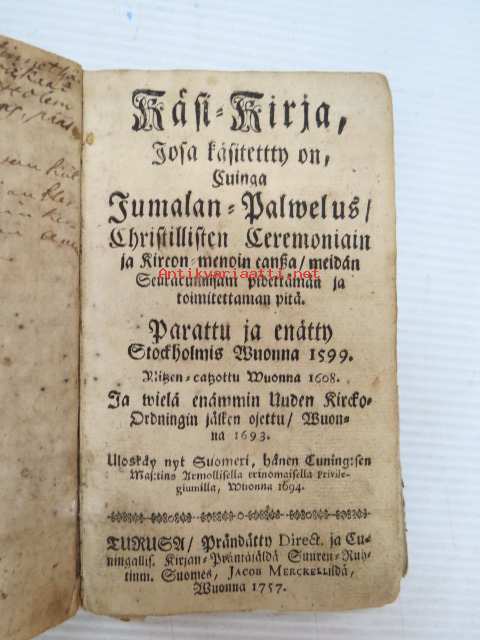 Käsi-Kirja,
Josa käsitettty on,
Cuinga
Jumalan-Palwelus/
Christillisten Ceremoniain
ja Kircon-menoin canßa/ meidän
Seuracunnisam pidettämän ja
toimitettaman pitä.
Antikvariaatti.net
Parattu ja enätty
Stockholmis Wuonna 1599.
Ritzen-catzottu Wuonna 1608.
Ja wielä enämmin Uuden Kircko-
Ordningin jälken ojettu/ Wuon-
na 1693.
Uloskäy nyt Suomexi, hänen Cuning:sen
Maj:tins Armollisella erinomaisella Privile-
giumilla, Wuonna 1694.
TURUSA/ Prändätty Direct. ja Cu-
ningallis. Kirjan-Präntäjäldä Suuren-Ruh-
tinm. Suomes, JACOB MERCKELLildä,
Wuonna 1757.